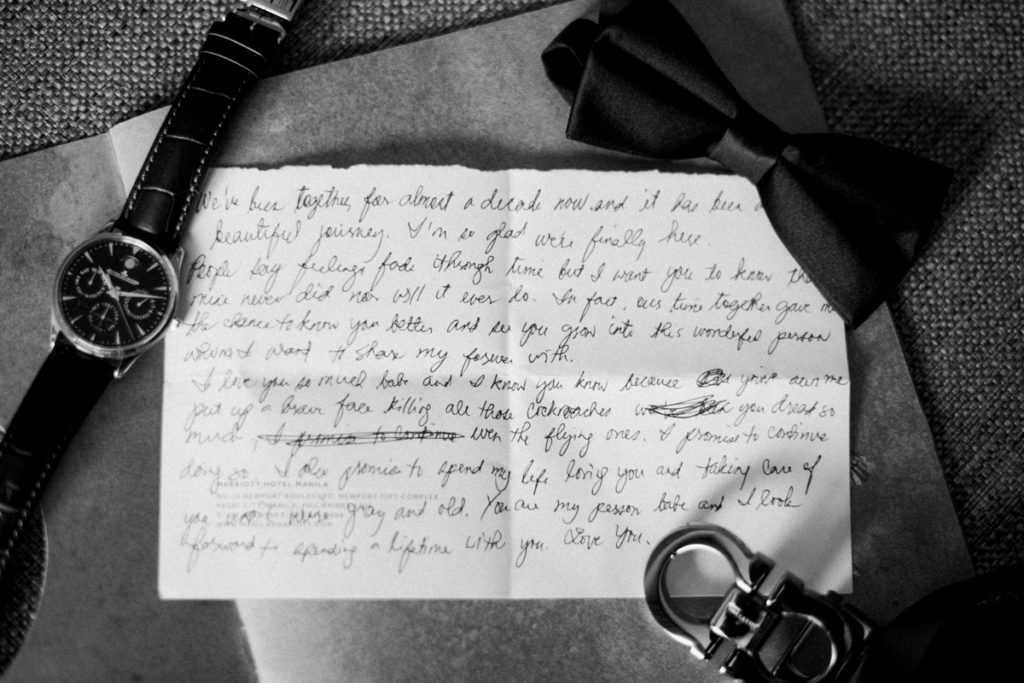 We've been together for almost a decade now and it has been a
beautiful journey. I'm so glad we're finally here.
People say feelings fade through time but I want you to know
mine never did nor will it ever do. In fact, our time together gave
the chance to know you better and see you grow into this wonderful person
whom I want to share my forever with.
I love you so much babe and I know you know because you've seen me
put up a brave face killing all those cockroaches you dread so
much I promise to continue even the flying ones. I promise to continue
doing so. I also promise to spend my life loving you and taking care of
MARRIOTT HOTEL MANILA
NO. 10 NEWPORT BOULEVARD, NEWPORT CITY COMPLEX
you gray and old. You are my person babe and I look
forward to spending a lifetime with you. Love You.